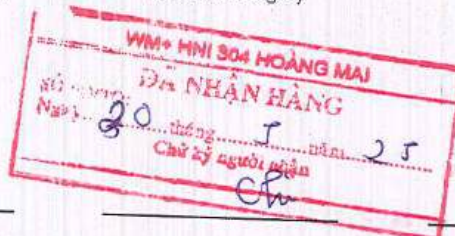 WM+ HNI 304 HOÀNG MAI
ĐÃ NHẬN HÀNG
Ngày 20 tháng 5 năm 25
Chữ ký người nhận